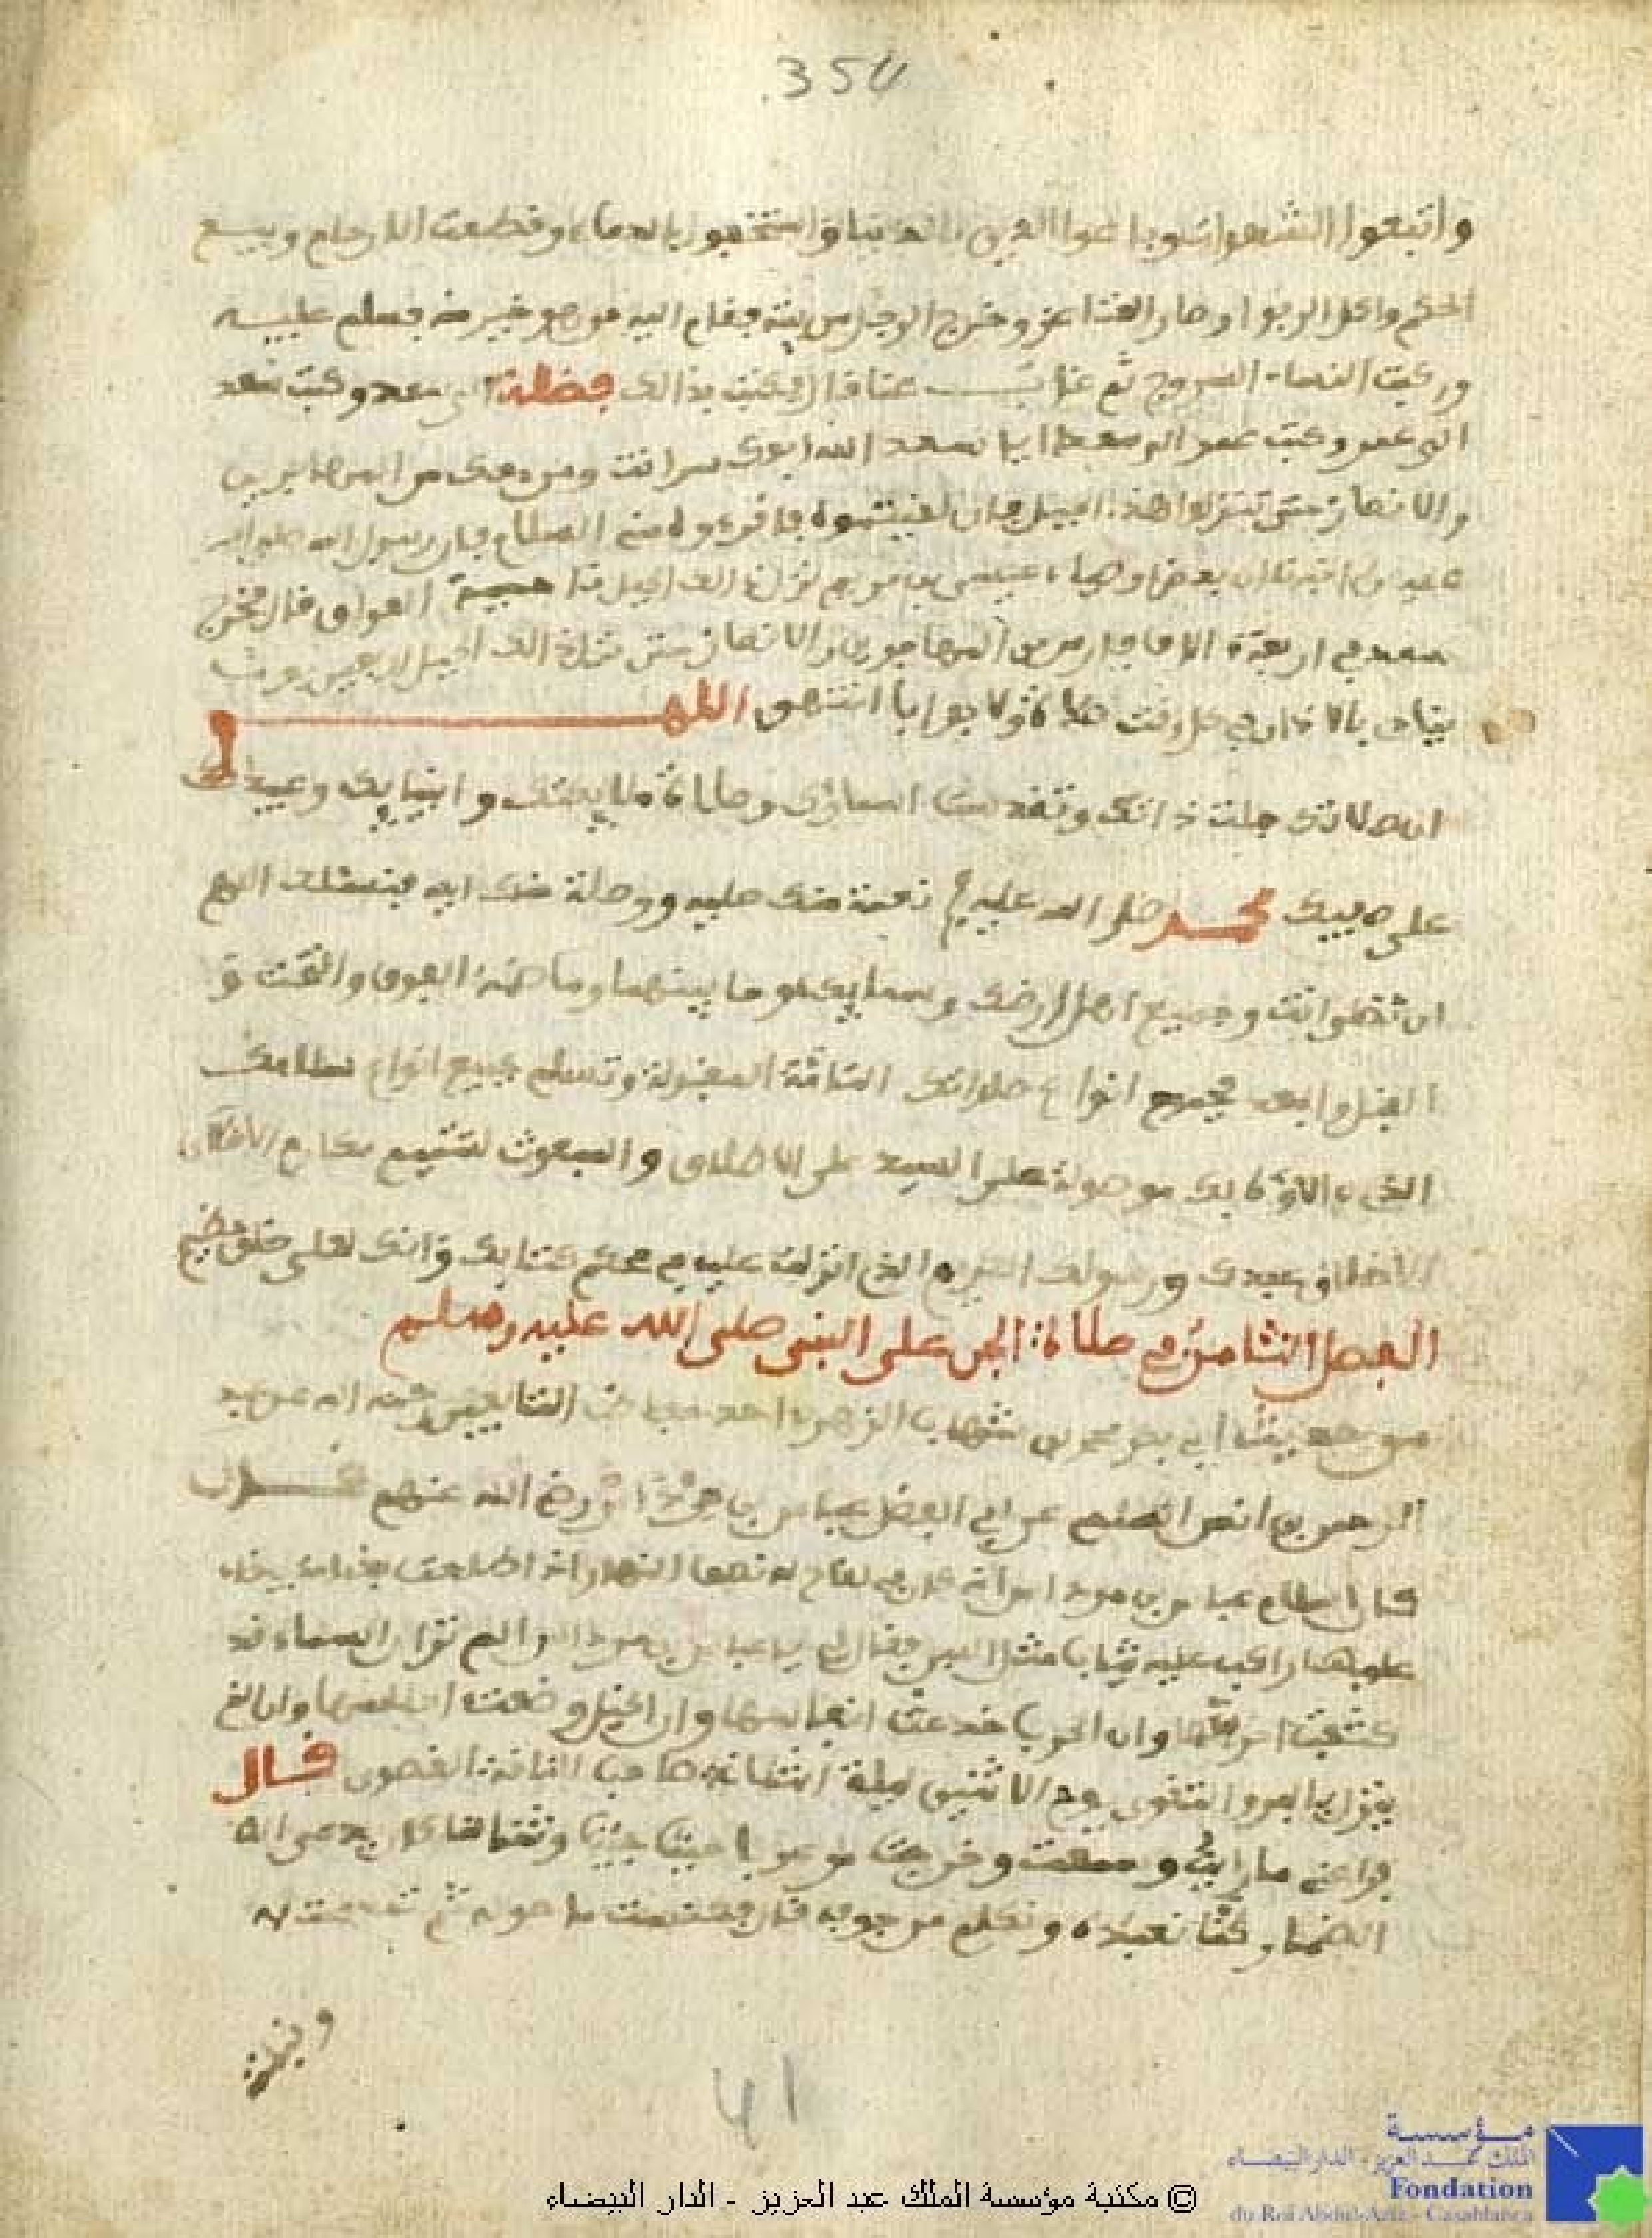 350
واتبعوا الشهوات وباعوا الدين بالدنيا واستخفوا بالدماء وقطعت الارحام وبيع
الحكم واكل الربوا وصار الغنا عز وخرج الرجل من بيته فقام اليه من هو خير منه فسلم عليه
وركبت النساء السروج ثم غاب عنا قال فكتب بذالك فضلة الى سعد وكتب سعد
الى عمر وكتب عمر الى سعد يا سعد لله ابوك سر انت ومن معك من المهاجرين
والانصار حتى تنزلوا هذا الجبل فان لقيتموه فاقرءوه مني السلام فان رسول الله صلى الله
عليه اخبرنا ان بعض اوصياء عيسى بن مريم نزل ذالك الجبل ناحية العراق قال فخرج
سعد في اربعة الاف فارس من المهاجرين والانصار حتى نزل ذالك الجبل اربعين يوما
ينادي بالاذان في كل وقت صلاة ولا جوابا انتهى اللهم
جلت ذاتك وتقدست اسماؤك وصلاة ملايكتك وانبيايك وعبيدك
على حبيبك محمد صلى الله عليه نعمة منك عليه ووصلة منك اليه فنسئلك اللهم
ان تصلي انت وجميع اهل ارضك وسمايك وما بينهما وما ضمه الفوق والتحت و
القبل والبعد بجميع انواع صلواتك التامة المقبولة وتسلم بجميع انواع سلامك
موصولة على السيد على الاطلاق والمبعوث لتتميم مكارم الاخلاق
عبدك ورسولك الكريم الذي انزلت عليه في محكم كتابك وانك لعلى خلق عظيم
الفصل الثامن في صلاة الجن على النبي صلى الله عليه وسلم
من حديث ابي بكر محمد بن شهاب الزهري احد التابعين رحمه الله عن عبد
الرحمن بن انس السلمي عن ابي الفضل عباس بن مرداس رضي الله عنهم
كان اسلام عباس بن مرداس انه كان في لقاح له نصف النهار اذ اطلعت نعامة بيضاء
عليها راكب عليه ثياب مثل اللبن فقال لي يا عباس بن مرداس الم تر ان السماء قد
كفت احراسها وان الحرب جرعت انفاسها وان الخيل وضعت احلاسها وان الذي
ينزل بالبر والتقوى يوم الاثنين ليلة الثلاثاء صاحب الناقة القصوى قال
فراعني ما رايت وسمعت وخرجت مرعوبا حتى جئت وثنا لنا كان يدعى
الضمار وكنا نعبده ونكلم من جوفه فكنست ما حوله ثم تمسحت به
وقبلته
41
مؤسسة
الملك عبد العزيز - الدار البيضاء
Fondation
du Roi Abdul-Aziz - Casablanca
© مكتبة مؤسسة الملك عبد العزيز - الدار البيضاء